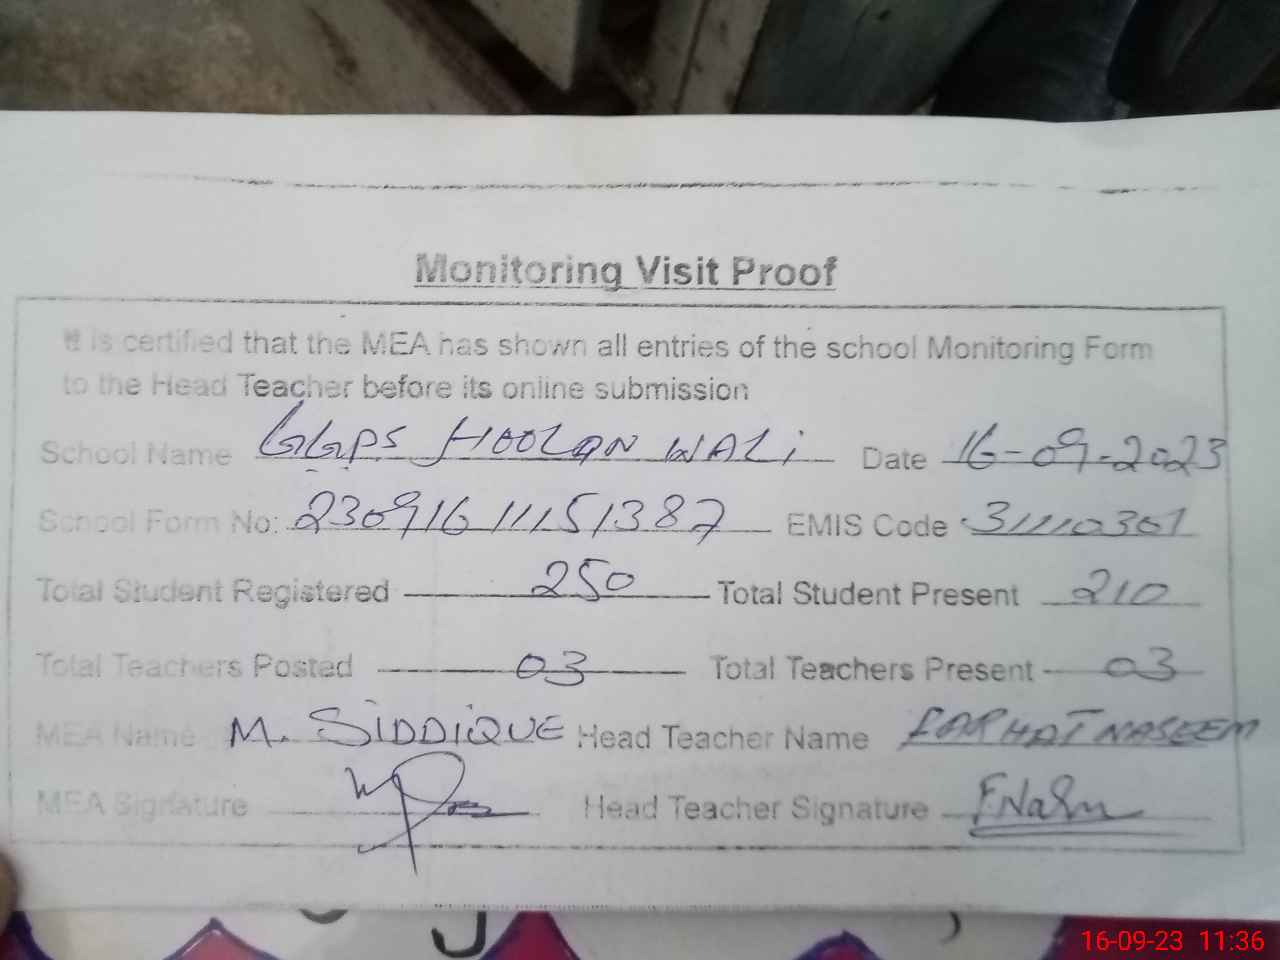 Monitoring Visit Proof
It is certified that the MEA has shown all entries of the school Monitoring Form
to the Head Teacher before its online submission
School Name GGPS HOOLAN WALI Date 16-09-2023
School Form No: 23091611151387 EMIS Code 31110301
Total Student Registered 250 Total Student Present 210
Total Teachers Posted 03 Total Teachers Present 03
MEA Name M. SIDDIQUE Head Teacher Name FARHAT NASEEM
MEA Signature Head Teacher Signature F.Nasm
16-09-23 11:36